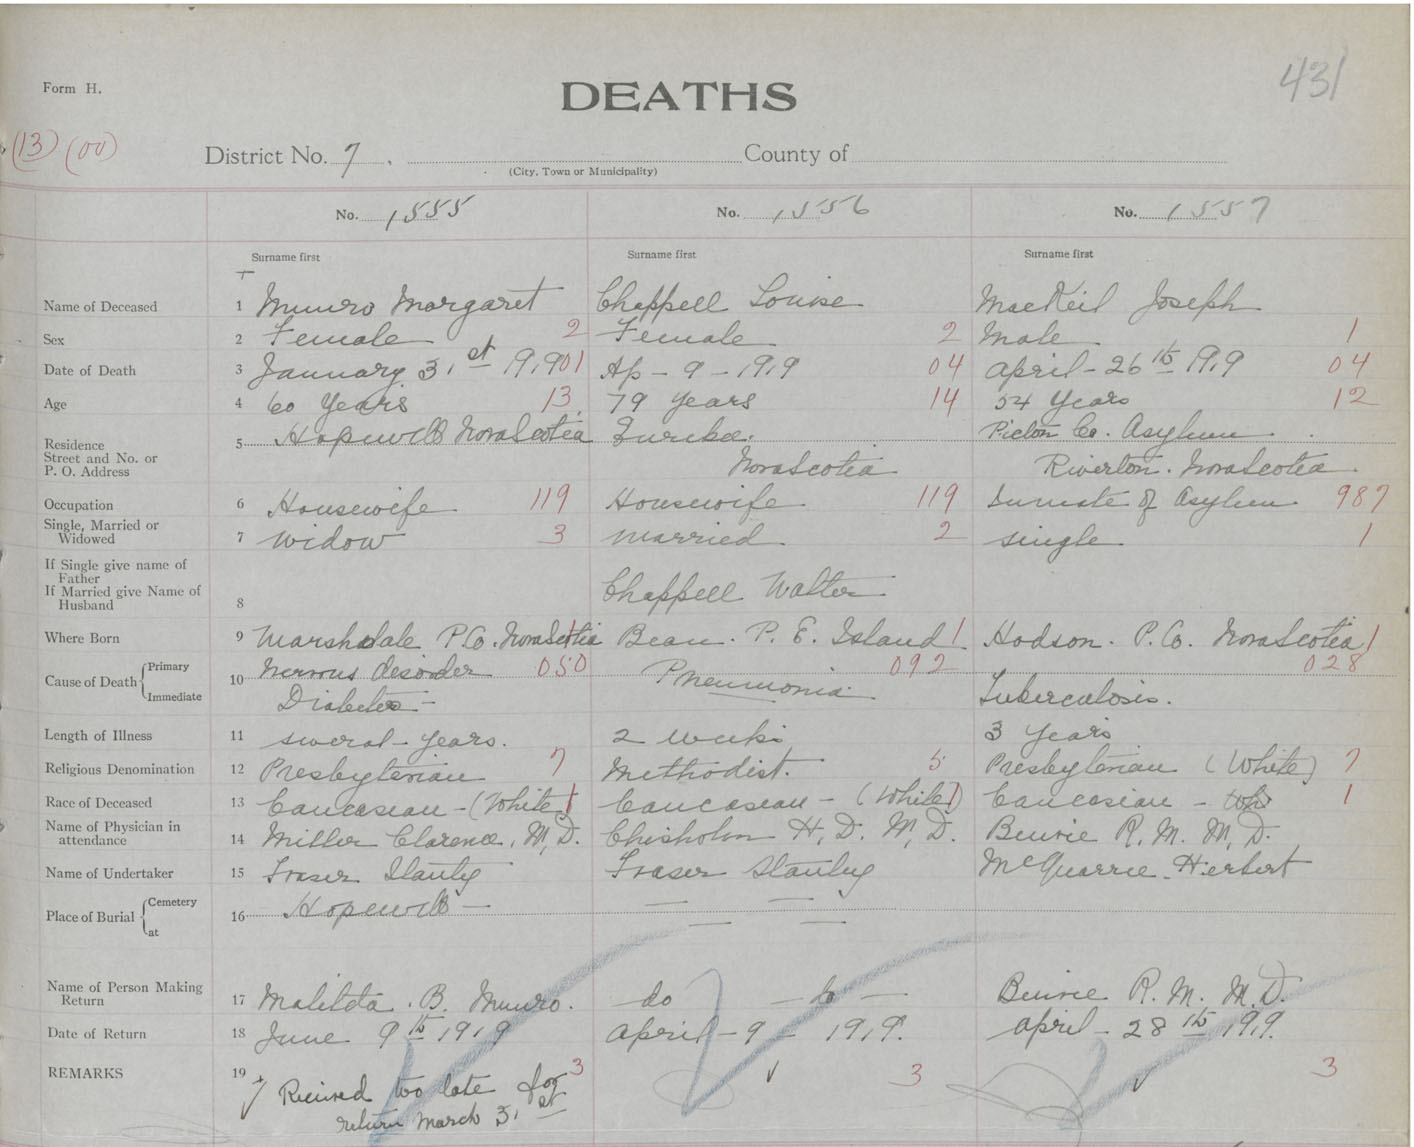 431
Form H.
DEATHS
(13) (00)
District No. 7. County of
(City, Town or Municipality)
No. 1555 No. 1556 No. 1557
Surname first Surname first Surname first
Name of Deceased 1 Munro Margaret Chappell Louise MacKeil Joseph
Sex 2 Female 2 Female 2 Male 1
Date of Death 3 January 31st 1919 01 Ap - 9 - 1919 04 April - 26th 1919 04
Age 4 60 Years 13 79 Years 14 54 Years 12
Residence 5 Hopewell Nova Scotia Eureka. Pictou Co. Asylum.
Street and No. or
P. O. Address Nova Scotia Riverton. Nova Scotia.
Occupation 6 Housewife 119 Housewife 119 Inmate of Asylum 987
Single, Married or
Widowed 7 Widow 3 Married 2 Single 1
If Single give name of
Father
If Married give Name of Chappell Walter
Husband 8
Where Born 9 Marshdale P. Co. Nova Scotia 1 Bear. P. E. Island 1 Hodson. P. Co. Nova Scotia 1
Cause of Death Primary 10 Nervous disorder 050 Pneumonia 092 028
Immediate Diabetes - Tuberculosis.
Length of Illness 11 several years. 2 weeks 3 Years
Religious Denomination 12 Presbyterian 7 Methodist. 5 Presbyterian (White) 7
Race of Deceased 13 Caucasean - (White) 1 Caucasean - (White) 1 Caucasean - Wh 1
Name of Physician in
attendance 14 Miller Clarence, M,D. Chisholm H, D. M, D. Benvie R. M. M, D.
Name of Undertaker 15 Fraser Stanly Fraser Stanley McQuarrie Herbert
Place of Burial Cemetery 16 Hopewell - — —
at — —
Name of Person Making
Return 17 Matilda. B. Munro. - do - do - Benvie R. M. M.D.
Date of Return 18 June 9th 1919 April - 9 - 1919. April - 28th 1919.
REMARKS 19 Received too late for 3 3 3
return March 31st